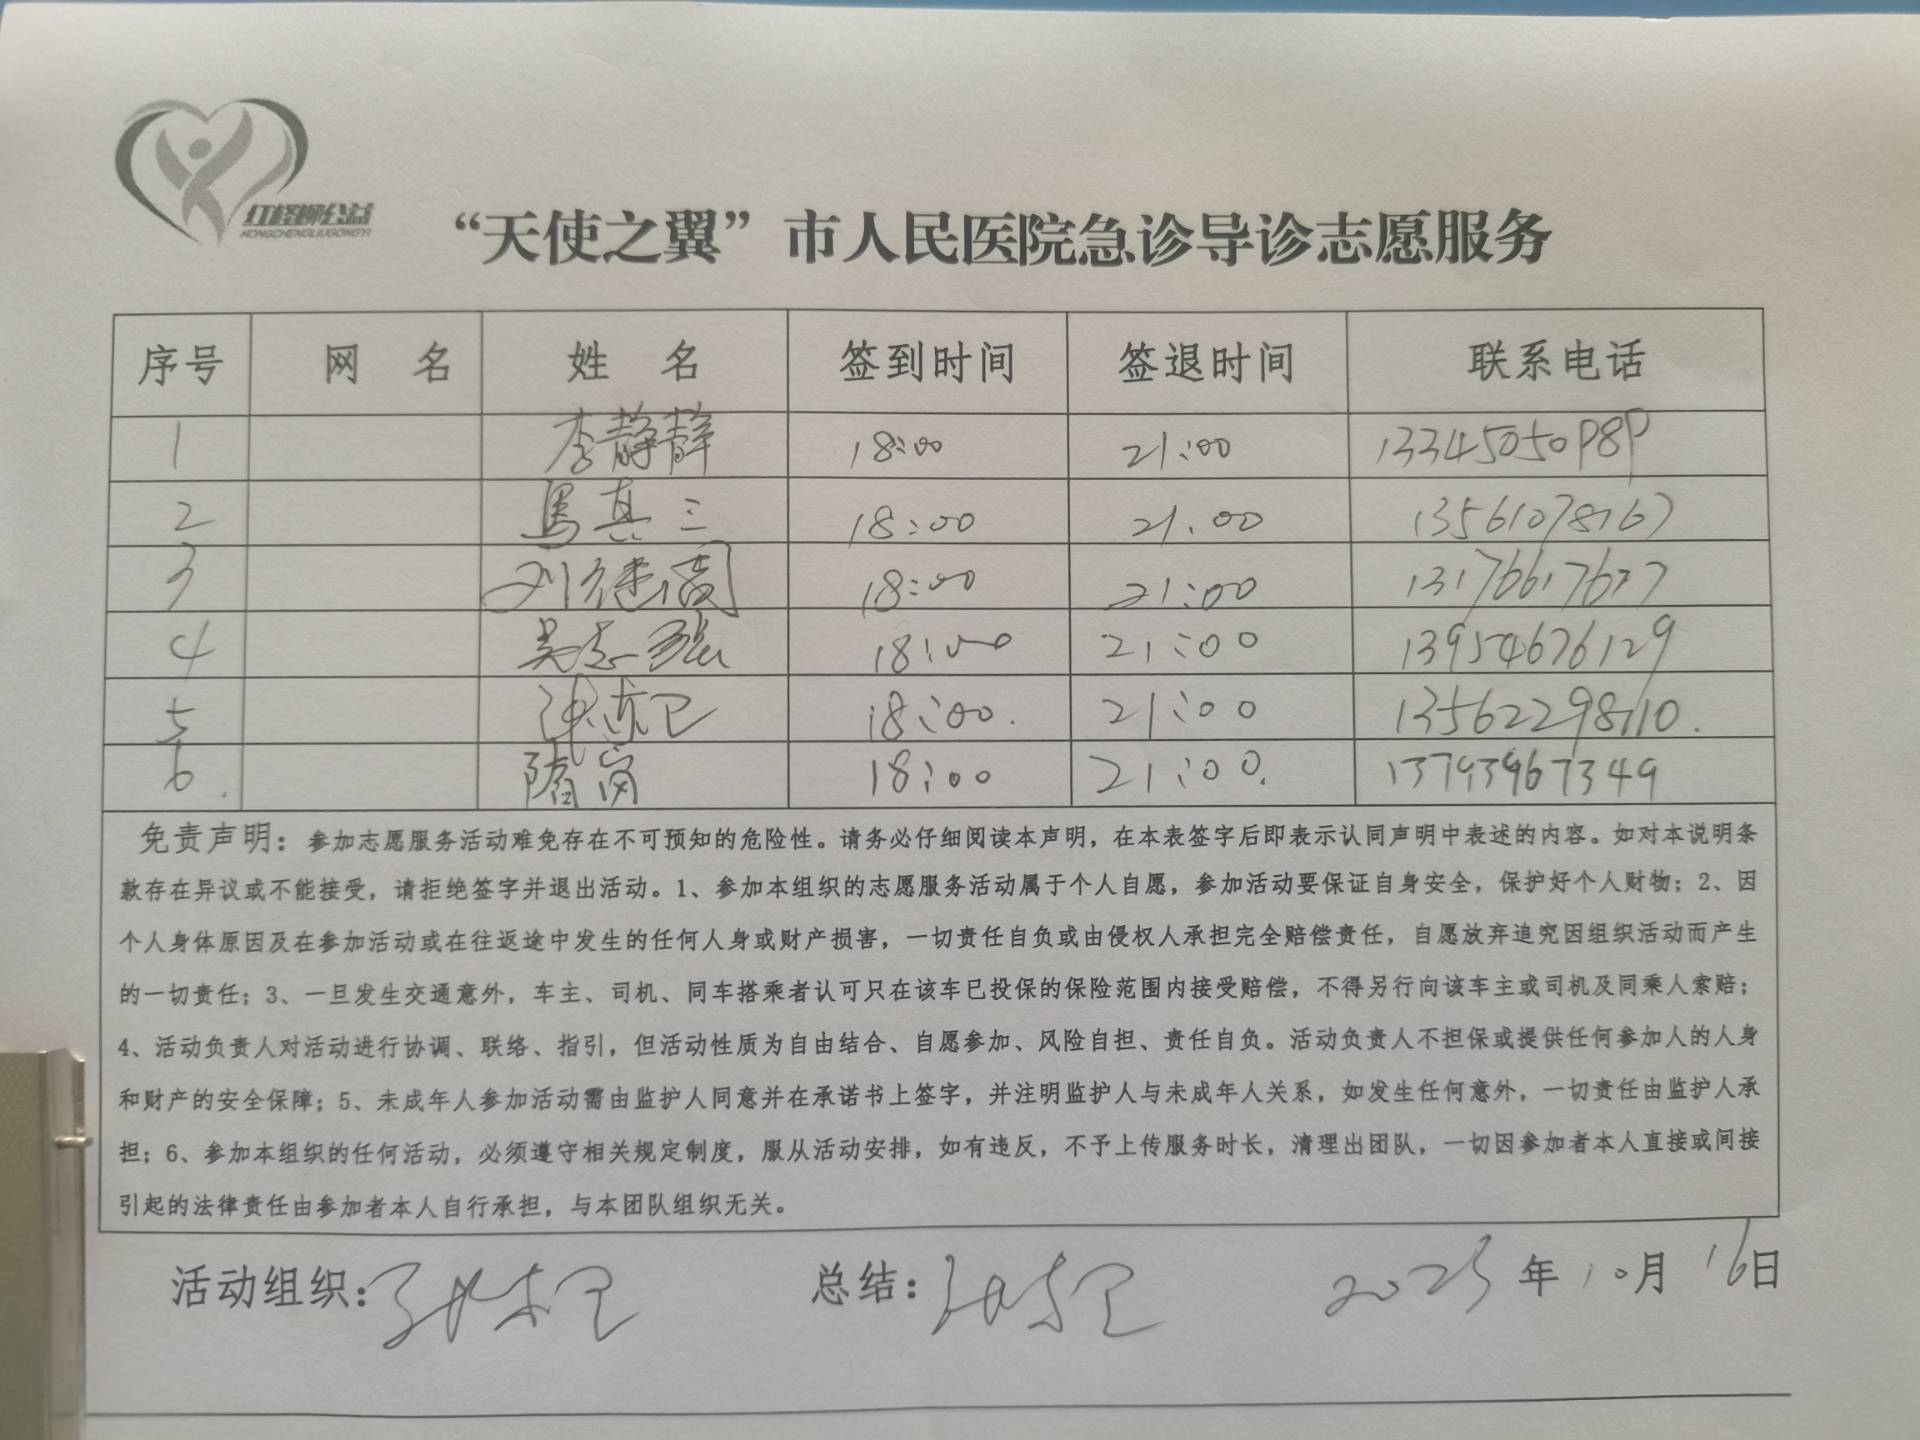 红柽柳公益
HONGCHENGLIUGONGYI
“天使之翼”市人民医院急诊导诊志愿服务
序号 网 名 姓 名 签到时间 签退时间 联系电话
1 李静静 18:00 21:00 13345050989
2 馬其三 18:00 21:00 13561078167
3 刘 18:00 21:00 13176617677
4 吴志强 18:00 21:00 13954676129
5 18:00 21:00 13562298110
6 隋岗 18:00 21:00 13793967349
免责声明：参加志愿服务活动难免存在不可预知的危险性。请务必仔细阅读本声明，在本表签字后即表示认同声明中表述的内容。如对本说明条
款存在异议或不能接受，请拒绝签字并退出活动。1、参加本组织的志愿服务活动属于个人自愿，参加活动要保证自身安全，保护好个人财物；2、因
个人身体原因及在参加活动或在往返途中发生的任何人身或财产损害，一切责任自负或由侵权人承担完全赔偿责任，自愿放弃追究因组织活动而产生
的一切责任；3、一旦发生交通意外，车主、司机、同车搭乘者认可只在该车已投保的保险范围内接受赔偿，不得另行向该车主或司机及同乘人索赔；
4、活动负责人对活动进行协调、联络、指引，但活动性质为自由结合、自愿参加、风险自担、责任自负。活动负责人不担保或提供任何参加人的人身
和财产的安全保障；5、未成年人参加活动需由监护人同意并在承诺书上签字，并注明监护人与未成年人关系，如发生任何意外，一切责任由监护人承
担；6、参加本组织的任何活动，必须遵守相关规定制度，服从活动安排，如有违反，不予上传服务时长，清理出团队，一切因参加者本人直接或间接
引起的法律责任由参加者本人自行承担，与本团队组织无关。
活动组织： 总结： 2025年10月16日